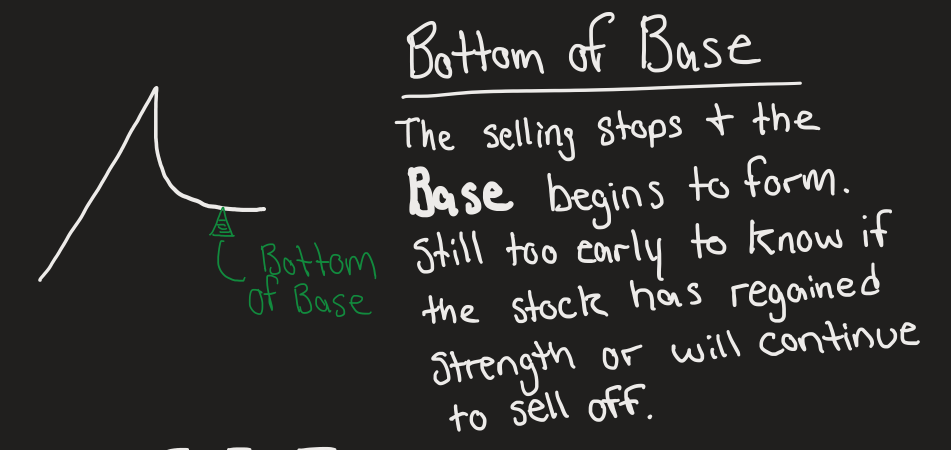 Bottom of Base
The selling stops + the
Base begins to form.
Still too early to know if
the stock has regained
strength or will continue
to sell off.
Bottom
of Base